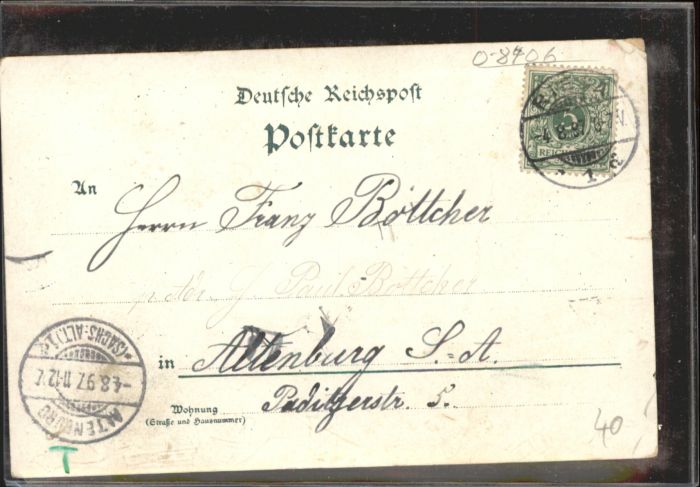 0-8406
Deutsche Reichspost
Postkarte
An
Herrn Franz Böttcher
p. Adr. G. Paul Böttcher
in Altenburg S.-A.
Wohnung
(Straße und Hausnummer)
Paditzerstr. 5.
ALTENBURG
*(SACHS.-ALT.)1c
-4.8.97. 11-12V.
T
40,-